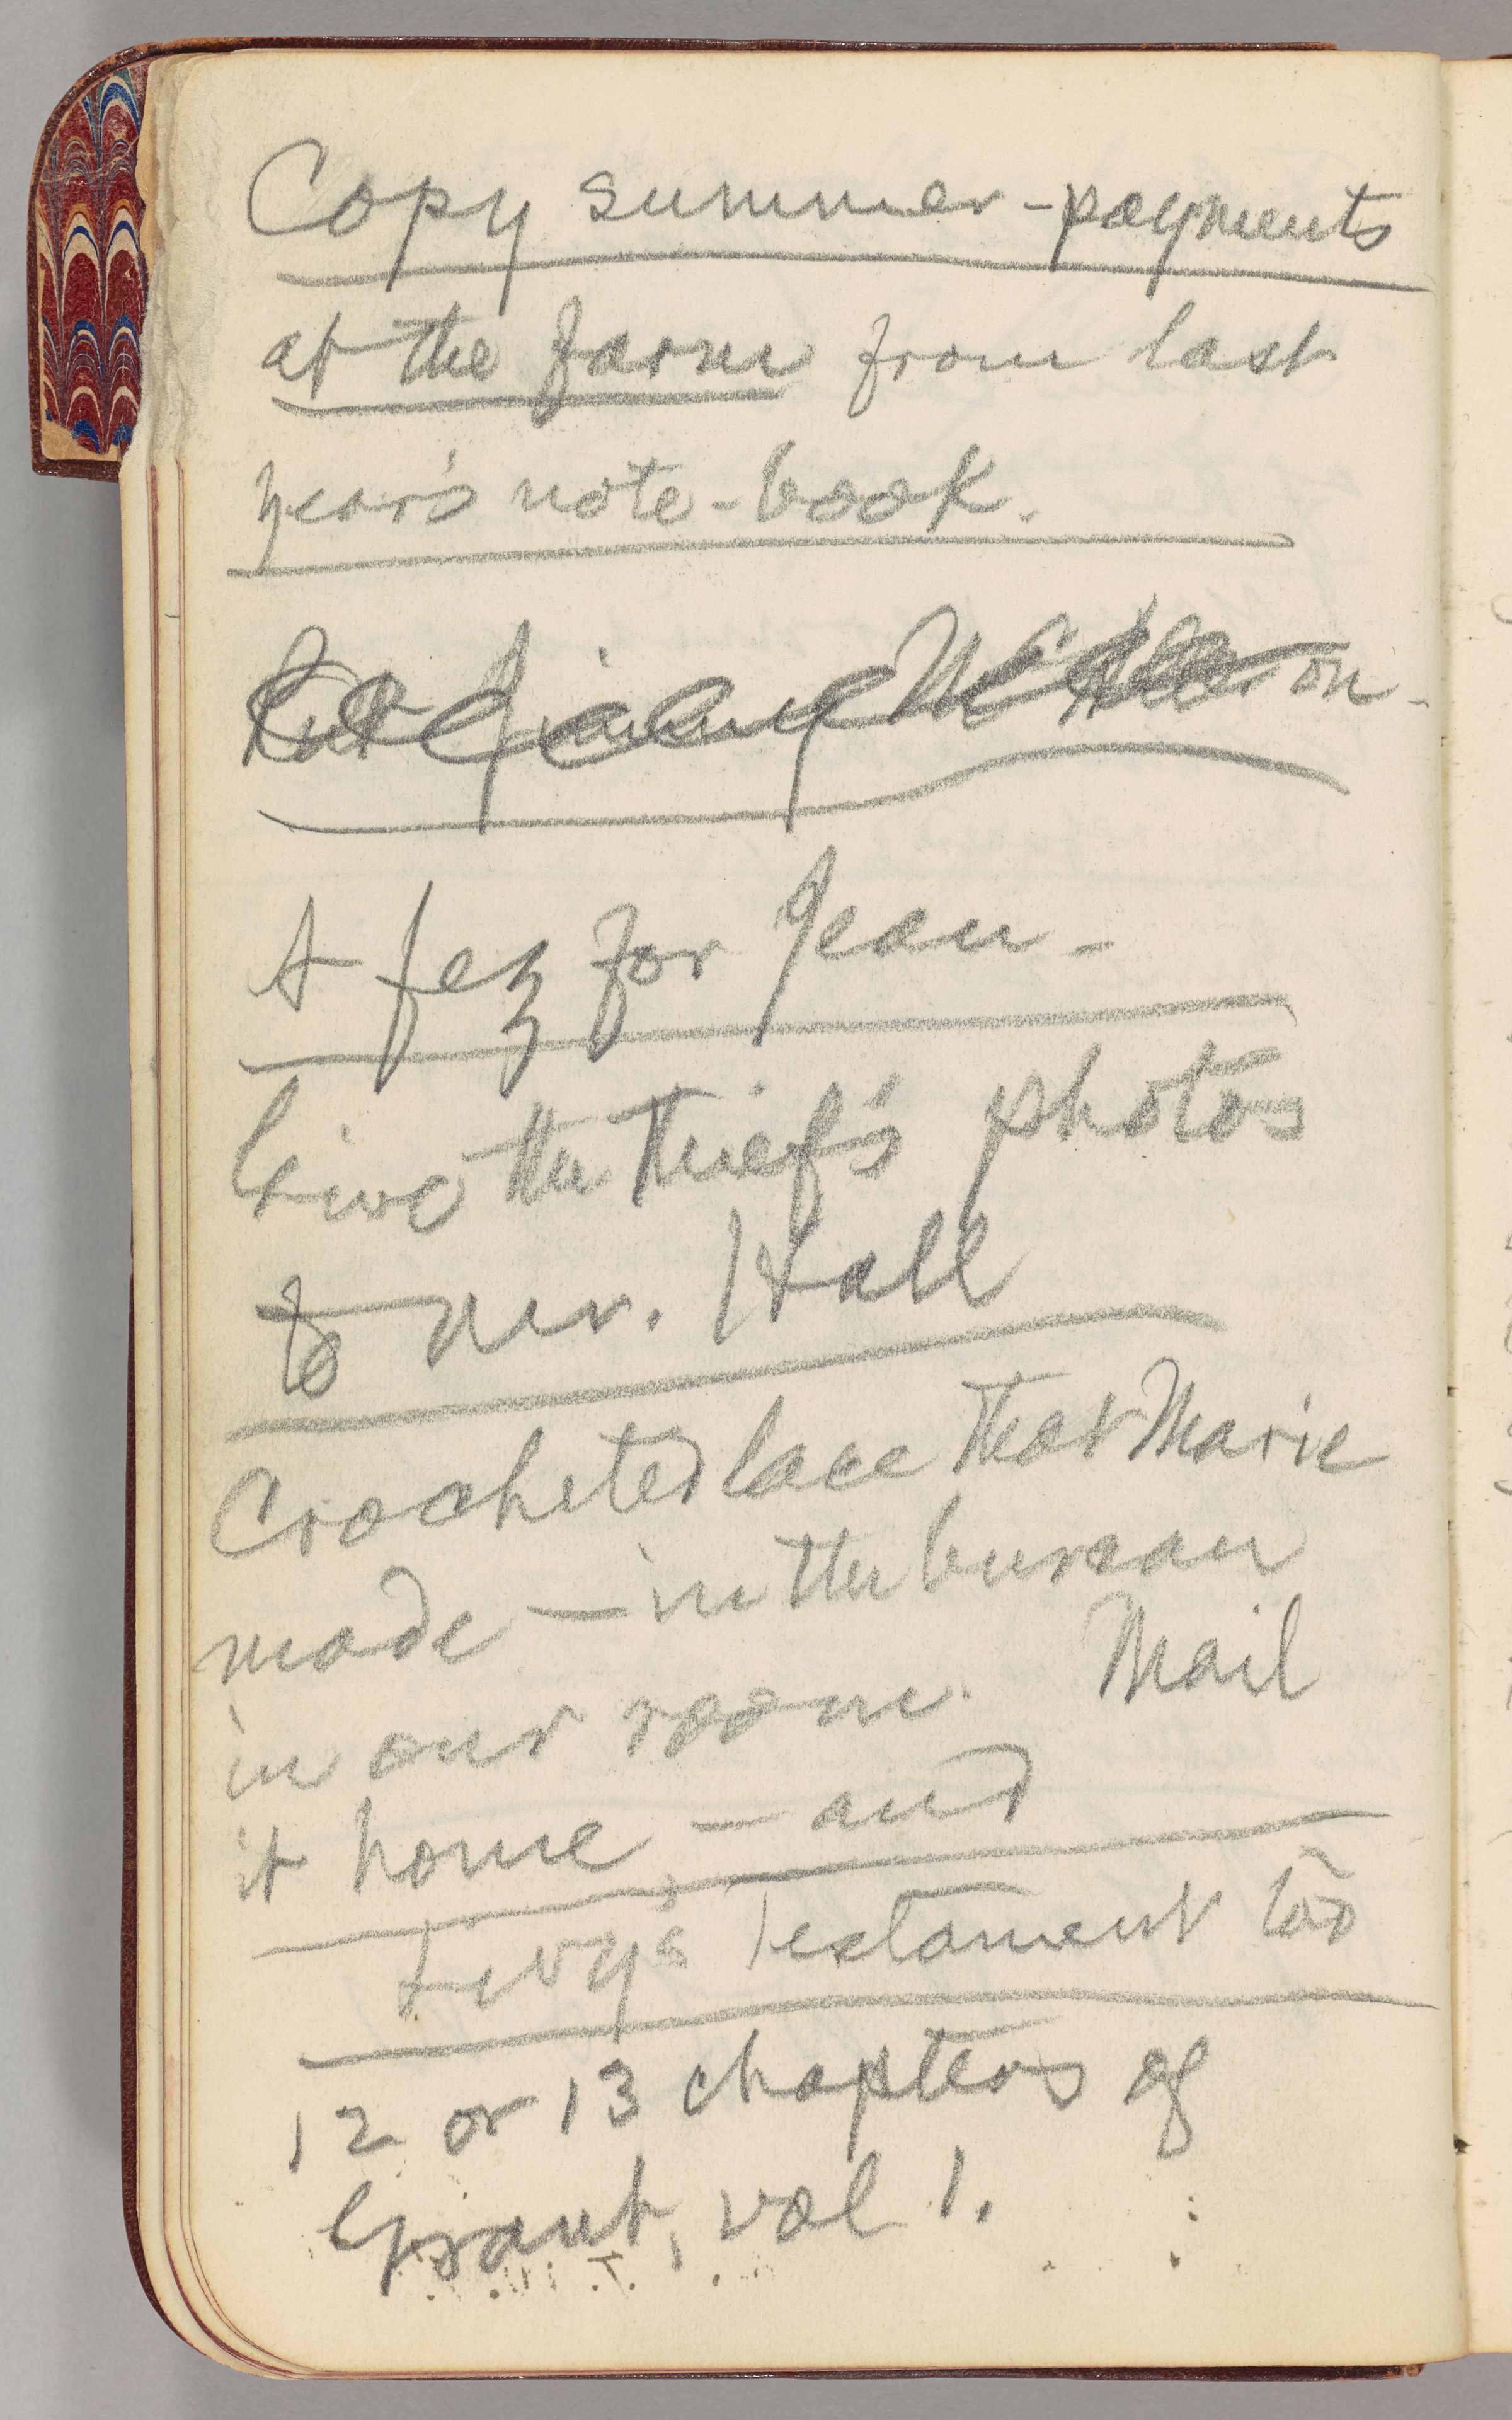 Copy summer-payments
at the farm from last
year's note-book.
on-
A fez for Jean-
Give the thief's photos
to Mr. Hall
Crocheted lace that Marie
made — in the bureau
in our room. Mail
it home — and
Livy's Testament too
12 or 13 chapters of
Grant, vol 1.